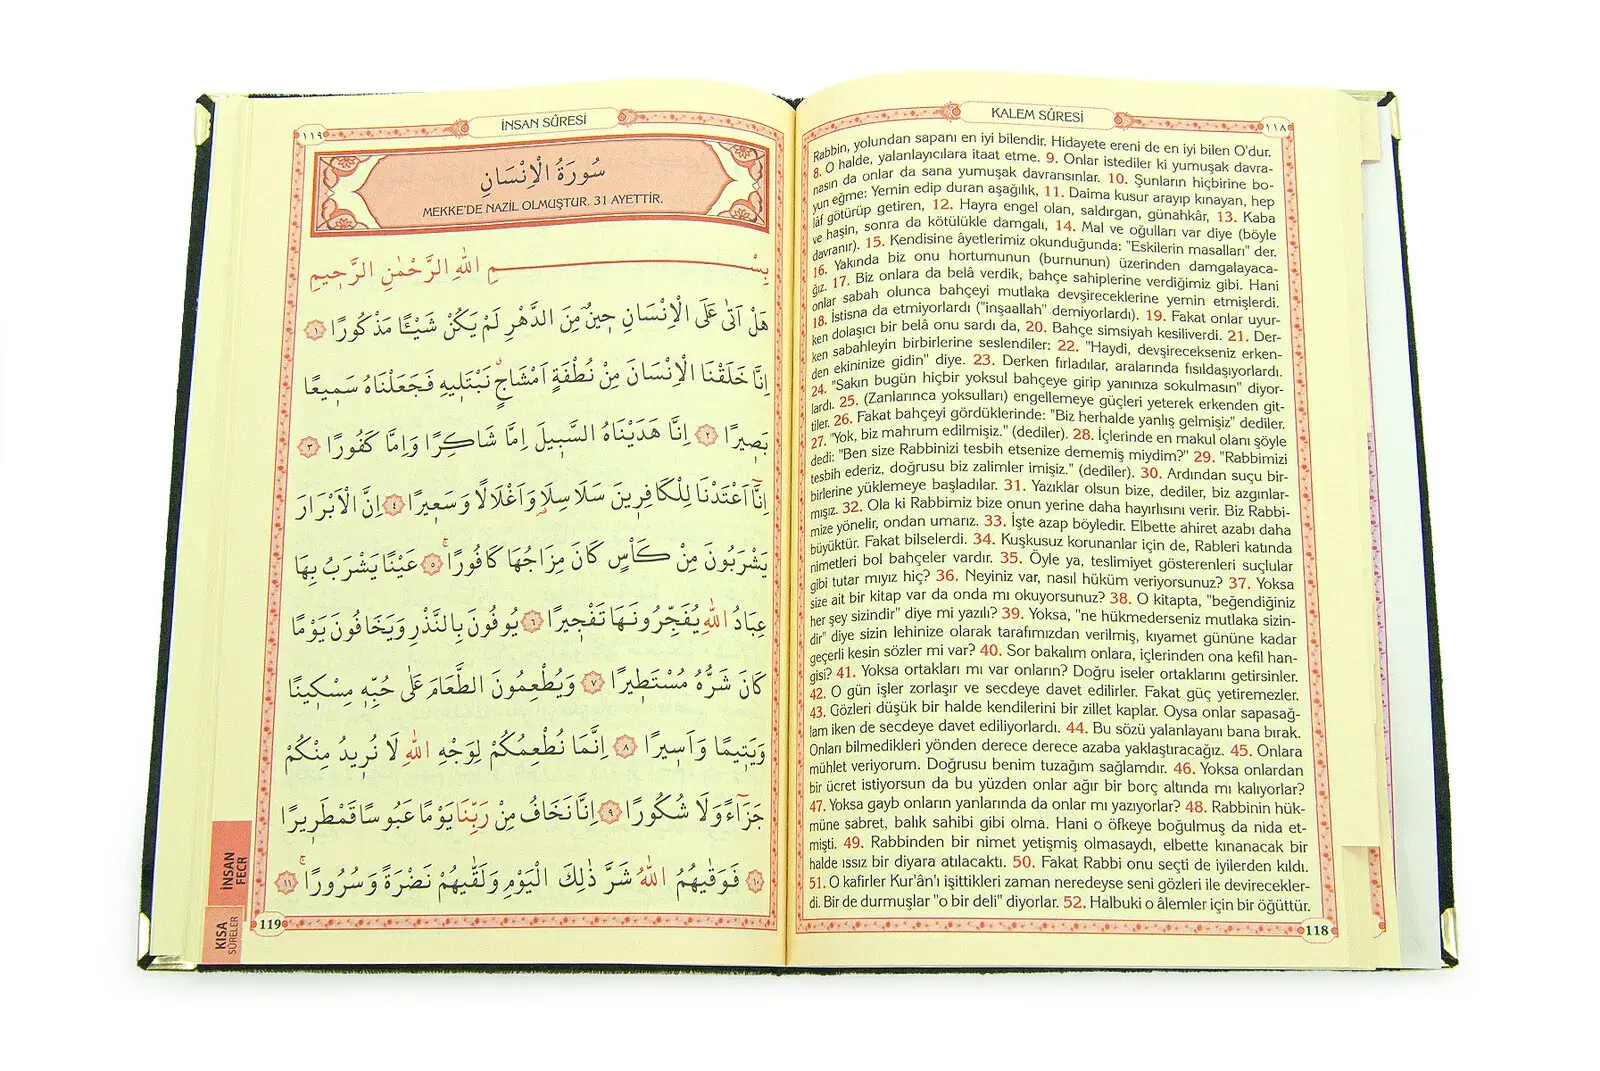 KALEM SÛRESİ
١١٨
Rabbin, yolundan sapanı en iyi bilendir. Hidayete ereni de en iyi bilen O'dur.
8. O halde, yalanlayıcılara itaat etme. 9. Onlar istediler ki yumuşak davra-
nasın da onlar da sana yumuşak davransınlar. 10. Şunların hiçbirine bo-
yun eğme: Yemin edip duran aşağılık, 11. Daima kusur arayıp kınayan, hep
lâf götürüp getiren, 12. Hayra engel olan, saldırgan, günahkâr, 13. Kaba
ve haşin, sonra da kötülükle damgalı, 14. Mal ve oğulları var diye (böyle
davranır). 15. Kendisine âyetlerimiz okunduğunda: "Eskilerin masalları" der.
16. Yakında biz onu hortumunun (burnunun) üzerinden damgalayaca-
ğız. 17. Biz onlara da belâ verdik, bahçe sahiplerine verdiğimiz gibi. Hani
onlar sabah olunca bahçeyi mutlaka devşireceklerine yemin etmişlerdi.
18. İstisna da etmiyorlardı ("inşaallah" demiyorlardı). 19. Fakat onlar uyur-
ken dolaşıcı bir belâ onu sardı da, 20. Bahçe simsiyah kesiliverdi. 21. Der-
ken sabahleyin birbirlerine seslendiler: 22. "Haydi, devşirecekseniz erken-
den ekininize gidin" diye. 23. Derken fırladılar, aralarında fısıldaşıyorlardı.
24. "Sakın bugün hiçbir yoksul bahçeye girip yanınıza sokulmasın" diyor-
lardı. 25. (Zanlarınca yoksulları) engellemeye güçleri yeterek erkenden git-
tiler. 26. Fakat bahçeyi gördüklerinde: "Biz herhalde yanlış gelmişiz" dediler.
27. "Yok, biz mahrum edilmişiz." (dediler). 28. İçlerinde en makul olanı şöyle
dedi: "Ben size Rabbinizi tesbih etsenize dememiş miydim?" 29. "Rabbimizi
tesbih ederiz, doğrusu biz zalimler imişiz." (dediler). 30. Ardından suçu bir-
birlerine yüklemeye başladılar. 31. Yazıklar olsun bize, dediler, biz azgınlar-
mışız. 32. Ola ki Rabbimiz bize onun yerine daha hayırlısını verir. Biz Rabbi-
mize yönelir, ondan umarız. 33. İşte azap böyledir. Elbette ahiret azabı daha
büyüktür. Fakat bilselerdi. 34. Kuşkusuz korunanlar için de, Rableri katında
nimetleri bol bahçeler vardır. 35. Öyle ya, teslimiyet gösterenleri suçlular
gibi tutar mıyız hiç? 36. Neyiniz var, nasıl hüküm veriyorsunuz? 37. Yoksa
size ait bir kitap var da onda mı okuyorsunuz? 38. O kitapta, "beğendiğiniz
her şey sizindir" diye mi yazılı? 39. Yoksa, "ne hükmederseniz mutlaka sizin-
dir" diye sizin lehinize olarak tarafımızdan verilmiş, kıyamet gününe kadar
geçerli kesin sözler mi var? 40. Sor bakalım onlara, içlerinden ona kefil han-
gisi? 41. Yoksa ortakları mı var onların? Doğru iseler ortaklarını getirsinler.
42. O gün işler zorlaşır ve secdeye davet edilirler. Fakat güç yetiremezler.
43. Gözleri düşük bir halde kendilerini bir zillet kaplar. Oysa onlar sapasağ-
lam iken de secdeye davet ediliyorlardı. 44. Bu sözü yalanlayanı bana bırak.
Onları bilmedikleri yönden derece derece azaba yaklaştıracağız. 45. Onlara
mühlet veriyorum. Doğrusu benim tuzağım sağlamdır. 46. Yoksa onlardan
bir ücret istiyorsun da bu yüzden onlar ağır bir borç altında mı kalıyorlar?
47. Yoksa gayb onların yanlarında da onlar mı yazıyorlar? 48. Rabbinin hük-
müne sabret, balık sahibi gibi olma. Hani o öfkeye boğulmuş da nida et-
mişti. 49. Rabbinden bir nimet yetişmiş olmasaydı, elbette kınanacak bir
halde ıssız bir diyara atılacaktı. 50. Fakat Rabbi onu seçti de iyilerden kıldı.
51. O kafirler Kur'ân'ı işittikleri zaman neredeyse seni gözleri ile devirecekler-
di. Bir de durmuşlar "o bir deli" diyorlar. 52. Halbuki o âlemler için bir öğüttür.
118
١١٩
İNSAN SÛRESİ
سُورَةُ الْاِنْسَانِ
MEKKE'DE NAZİL OLMUŞTUR. 31 AYETTİR.
بِسْمِ اللهِ الرَّحْمٰنِ الرَّحِيمِ
هَلْ اَتٰى عَلَى الْاِنْسَانِ حِينٌ مِنَ الدَّهْرِ لَمْ يَكُنْ شَيْـًٔا مَذْكُورًا ١
اِنَّا خَلَقْنَا الْاِنْسَانَ مِنْ نُطْفَةٍ اَمْشَاجٍۗ نَبْتَلِيهِ فَجَعَلْنَاهُ سَمِيعًا
بَصِيرًا ٢ اِنَّا هَدَيْنَاهُ السَّبِيلَ اِمَّا شَاكِرًا وَاِمَّا كَفُورًا ٣
اِنَّٓا اَعْتَدْنَا لِلْكَافِرِينَ سَلَاسِلَا۬ وَاَغْلَالًا وَسَعِيرًا ٤ اِنَّ الْاَبْرَارَ
يَشْرَبُونَ مِنْ كَأْسٍ كَانَ مِزَاجُهَا كَافُورًاۚ ٥ عَيْنًا يَشْرَبُ بِهَا
عِبَادُ اللهِ يُفَجِّرُونَهَا تَفْجِيرًا ٦ يُوفُونَ بِالنَّذْرِ وَيَخَافُونَ يَوْمًا
كَانَ شَرُّهُ مُسْتَطِيرًا ٧ وَيُطْعِمُونَ الطَّعَامَ عَلٰى حُبِّهٖ مِسْكِينًا
وَيَتِيمًا وَاَسِيرًا ٨ اِنَّمَا نُطْعِمُكُمْ لِوَجْهِ اللهِ لَا نُرِيدُ مِنْكُمْ
جَزَٓاءً وَلَا شُكُورًا ٩ اِنَّا نَخَافُ مِنْ رَبِّنَا يَوْمًا عَبُوسًا قَمْطَرِيرًا
١٠ فَوَقٰيهُمُ اللهُ شَرَّ ذٰلِكَ الْيَوْمِ وَلَقّٰيهُمْ نَضْرَةً وَسُرُورًاۚ ١١
İNSAN
FECR
KISA
SÛRELER
119